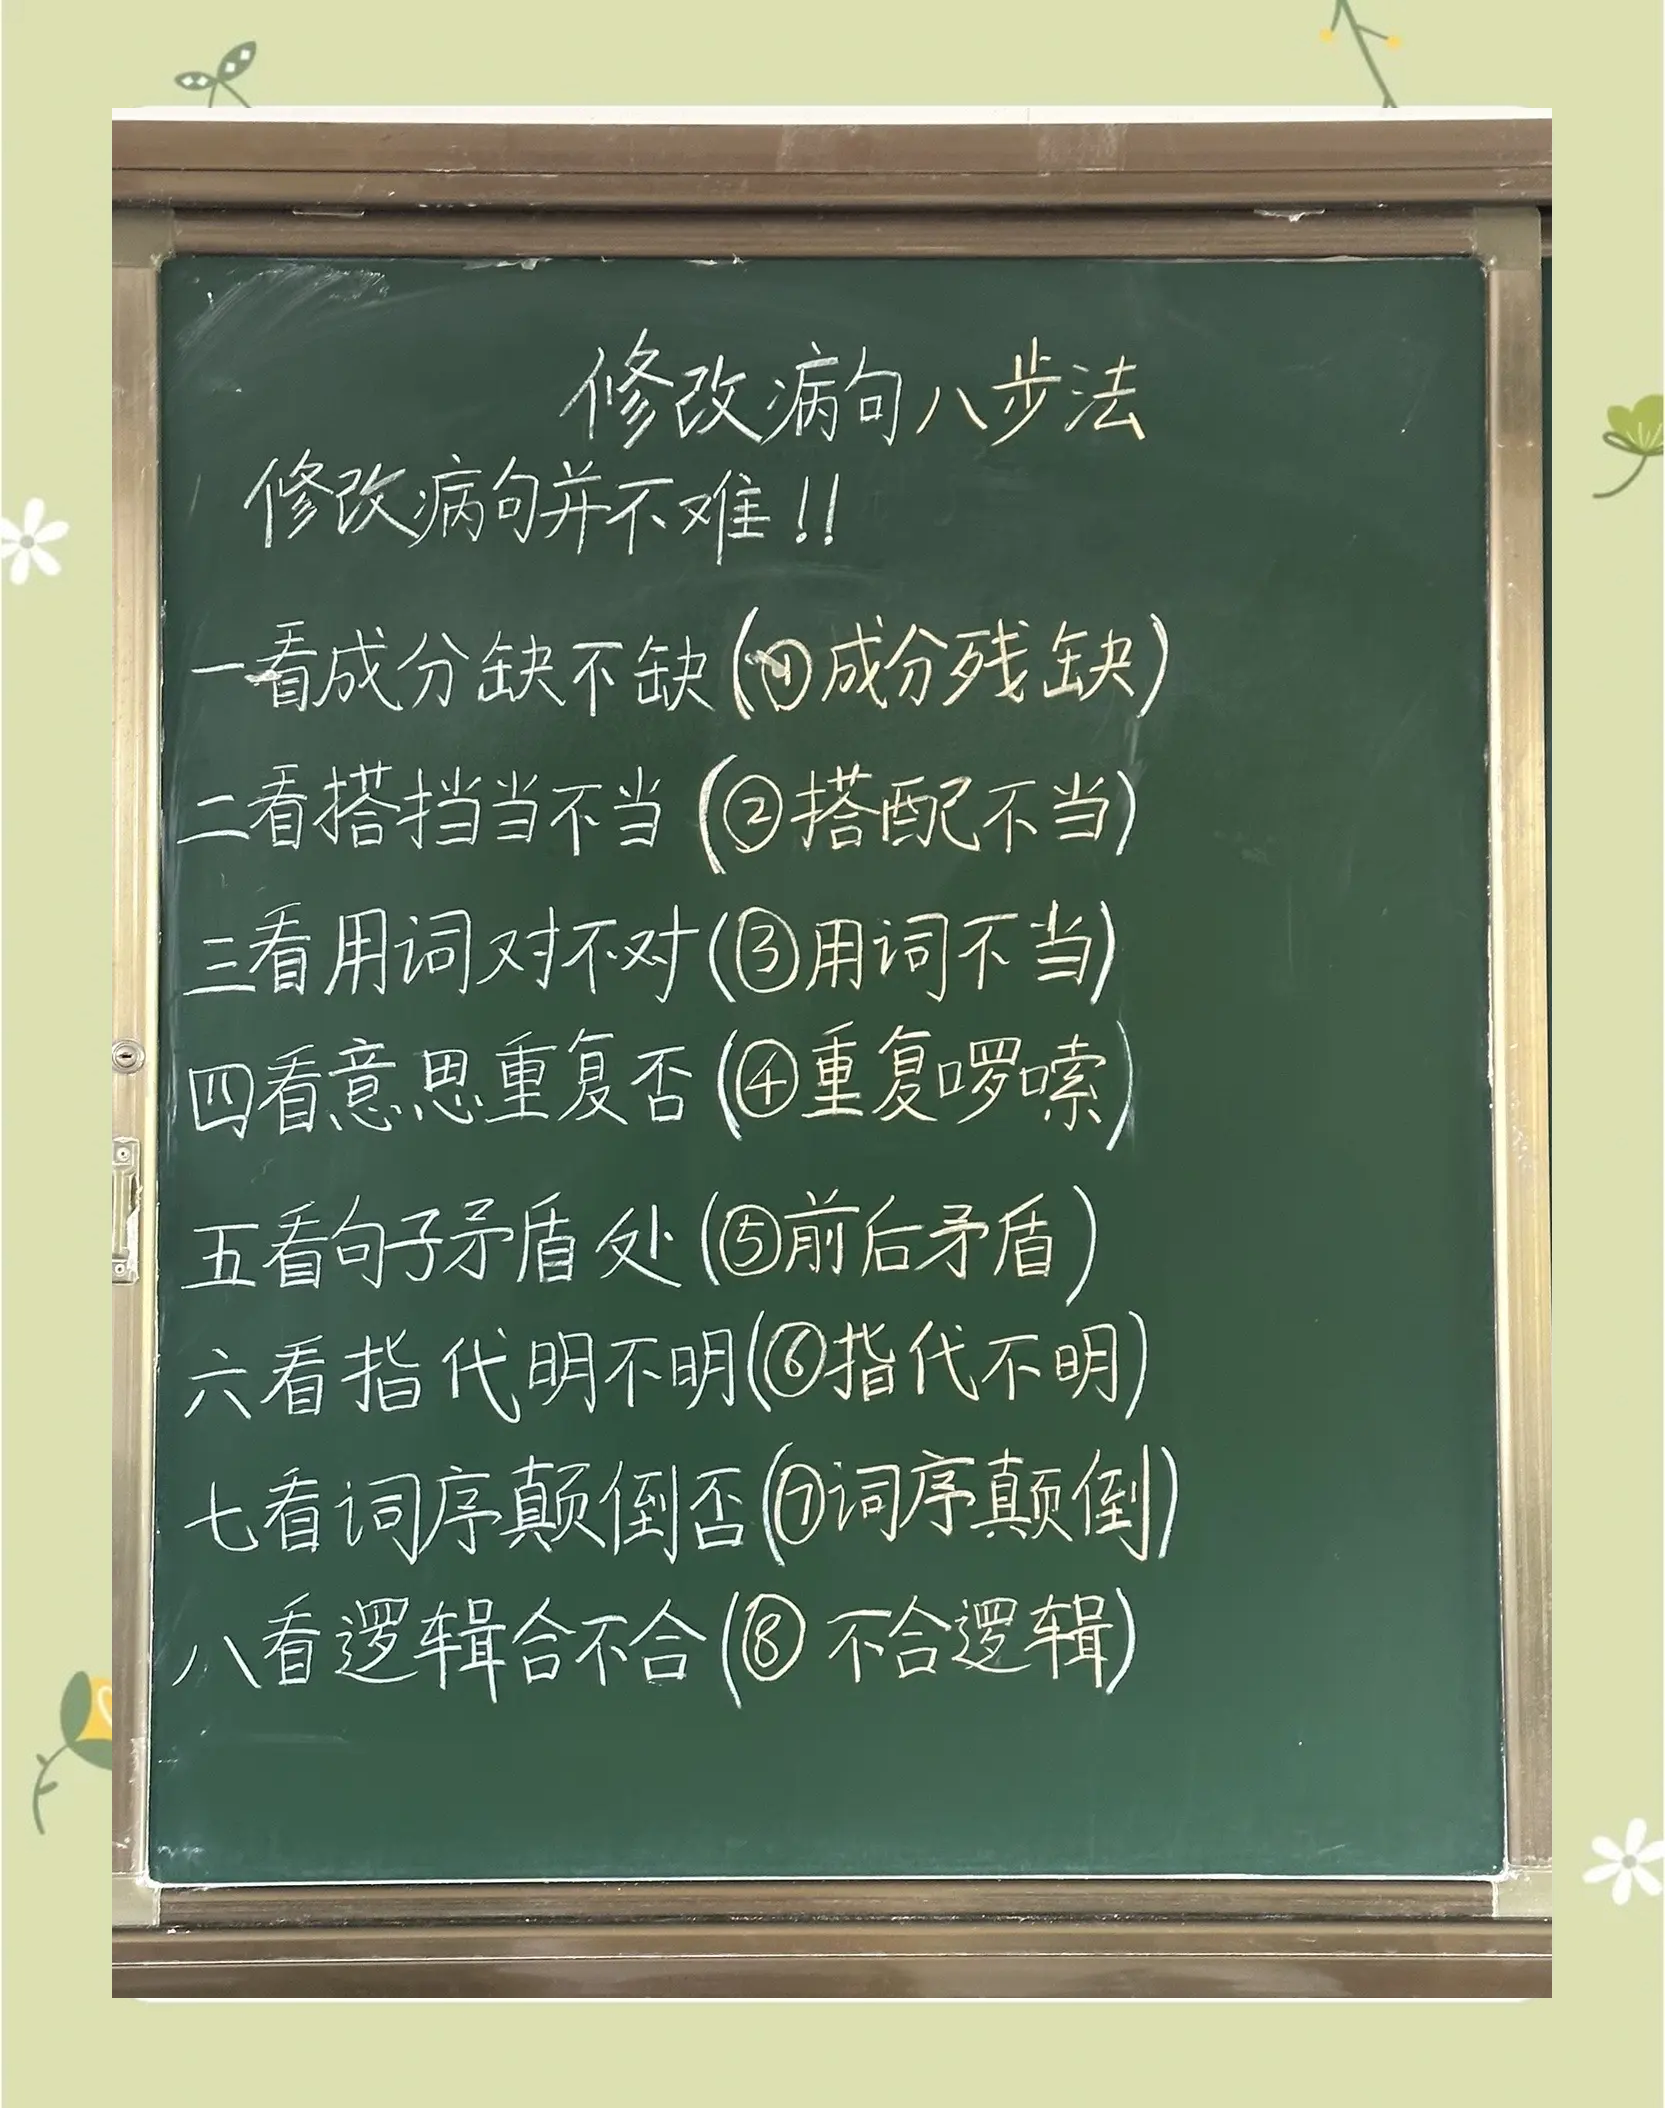 修改病句八步法
修改病句并不难!!
一看成分缺不缺(①成分残缺)
二看搭挡当不当(②搭配不当)
三看用词对不对(③用词不当)
四看意思重复否(④重复啰嗦)
五看句子矛盾处(⑤前后矛盾)
六看指代明不明(⑥指代不明)
七看词序颠倒否(⑦词序颠倒)
八看逻辑合不合(⑧不合逻辑)